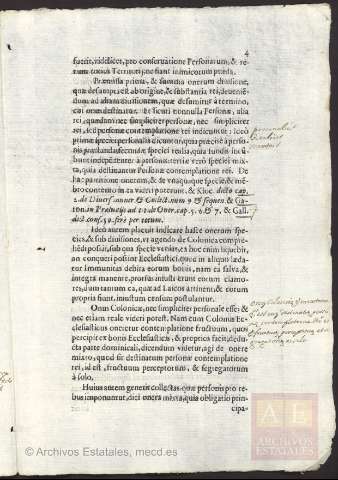 4
fuerit, videlicet, pro conservatione Personarum, & rerum
totius Territorij, ne fiant inimicorum præda.
Præmissa prima, & summa onerum divisione,
quæ desumpta est ab origine, & substantia rei, deveniendum
ad aliam divisionem, quæ desumitur à termino,
cui onus destinatur, & sicuti nonnulla Personæ, alia
rei, quædam nec simpliciter personæ, nec simpliciter
rei, sed personæ contemplatione rei indicuntur: Ideò
primæ speciei personalia dicuntur, quia præcisè a personis
præstanda, secundæ speciei realia, quia fundis incumbunt
independenter à personis, tertiæ verò speciei mixta,
quia destinantur Personæ contemplatione rei. De
hac partitione onerum, & de unaquaque specie, & membro
contento in ea videri poterunt, & Kloc. dicto cap.
2. de Divers. muner. & Collect. num. 9. & sequen. & Gaston.
in Præmeijs ad tr. de Oner. cap. 5. 6. & 7. & Gall.
dict. cons. 59. ferè per totum.
Ideò autem placuit indicare hasce onerum species,
& sub divisiones, ut agendo de Colonica comprehédi
possit, sub qua specie veniat, ex hoc enim liquebit,
an conqueri possint Ecclesiastici, quod in aliquo lædatur
Immunitas debita eorum bonis, nam ea salva, & integra
manente, prorsus iniusti erunt eorum clamores,
dum tantum ea, quæ ad Laicos attinent, & eorum
propria sunt, iniustum censum postulantur.
Onus Colonicæ, nec simpliciter personale esse, & nec
etiam reale videri potest. Nam cum Colonis Ecclesiasticis
oneretur contemplatione fructuum, quos
percipit ex bonis Ecclesiasticis, & proprios facit, deducta
parte dominicali, dicendum videtur, agi de onere
mixto, quod sit destinatum personæ contemplatione
rei, id est, fructuum perceptorum, & segregatorum
à solo.
Huius autem generis collectas, quæ personis pro rebus
imponuntur, dici onera mixta, quia obligatio principa-
AL
ARCHIVOS
ESTATALES
© Archivos Estatales, mecd.es